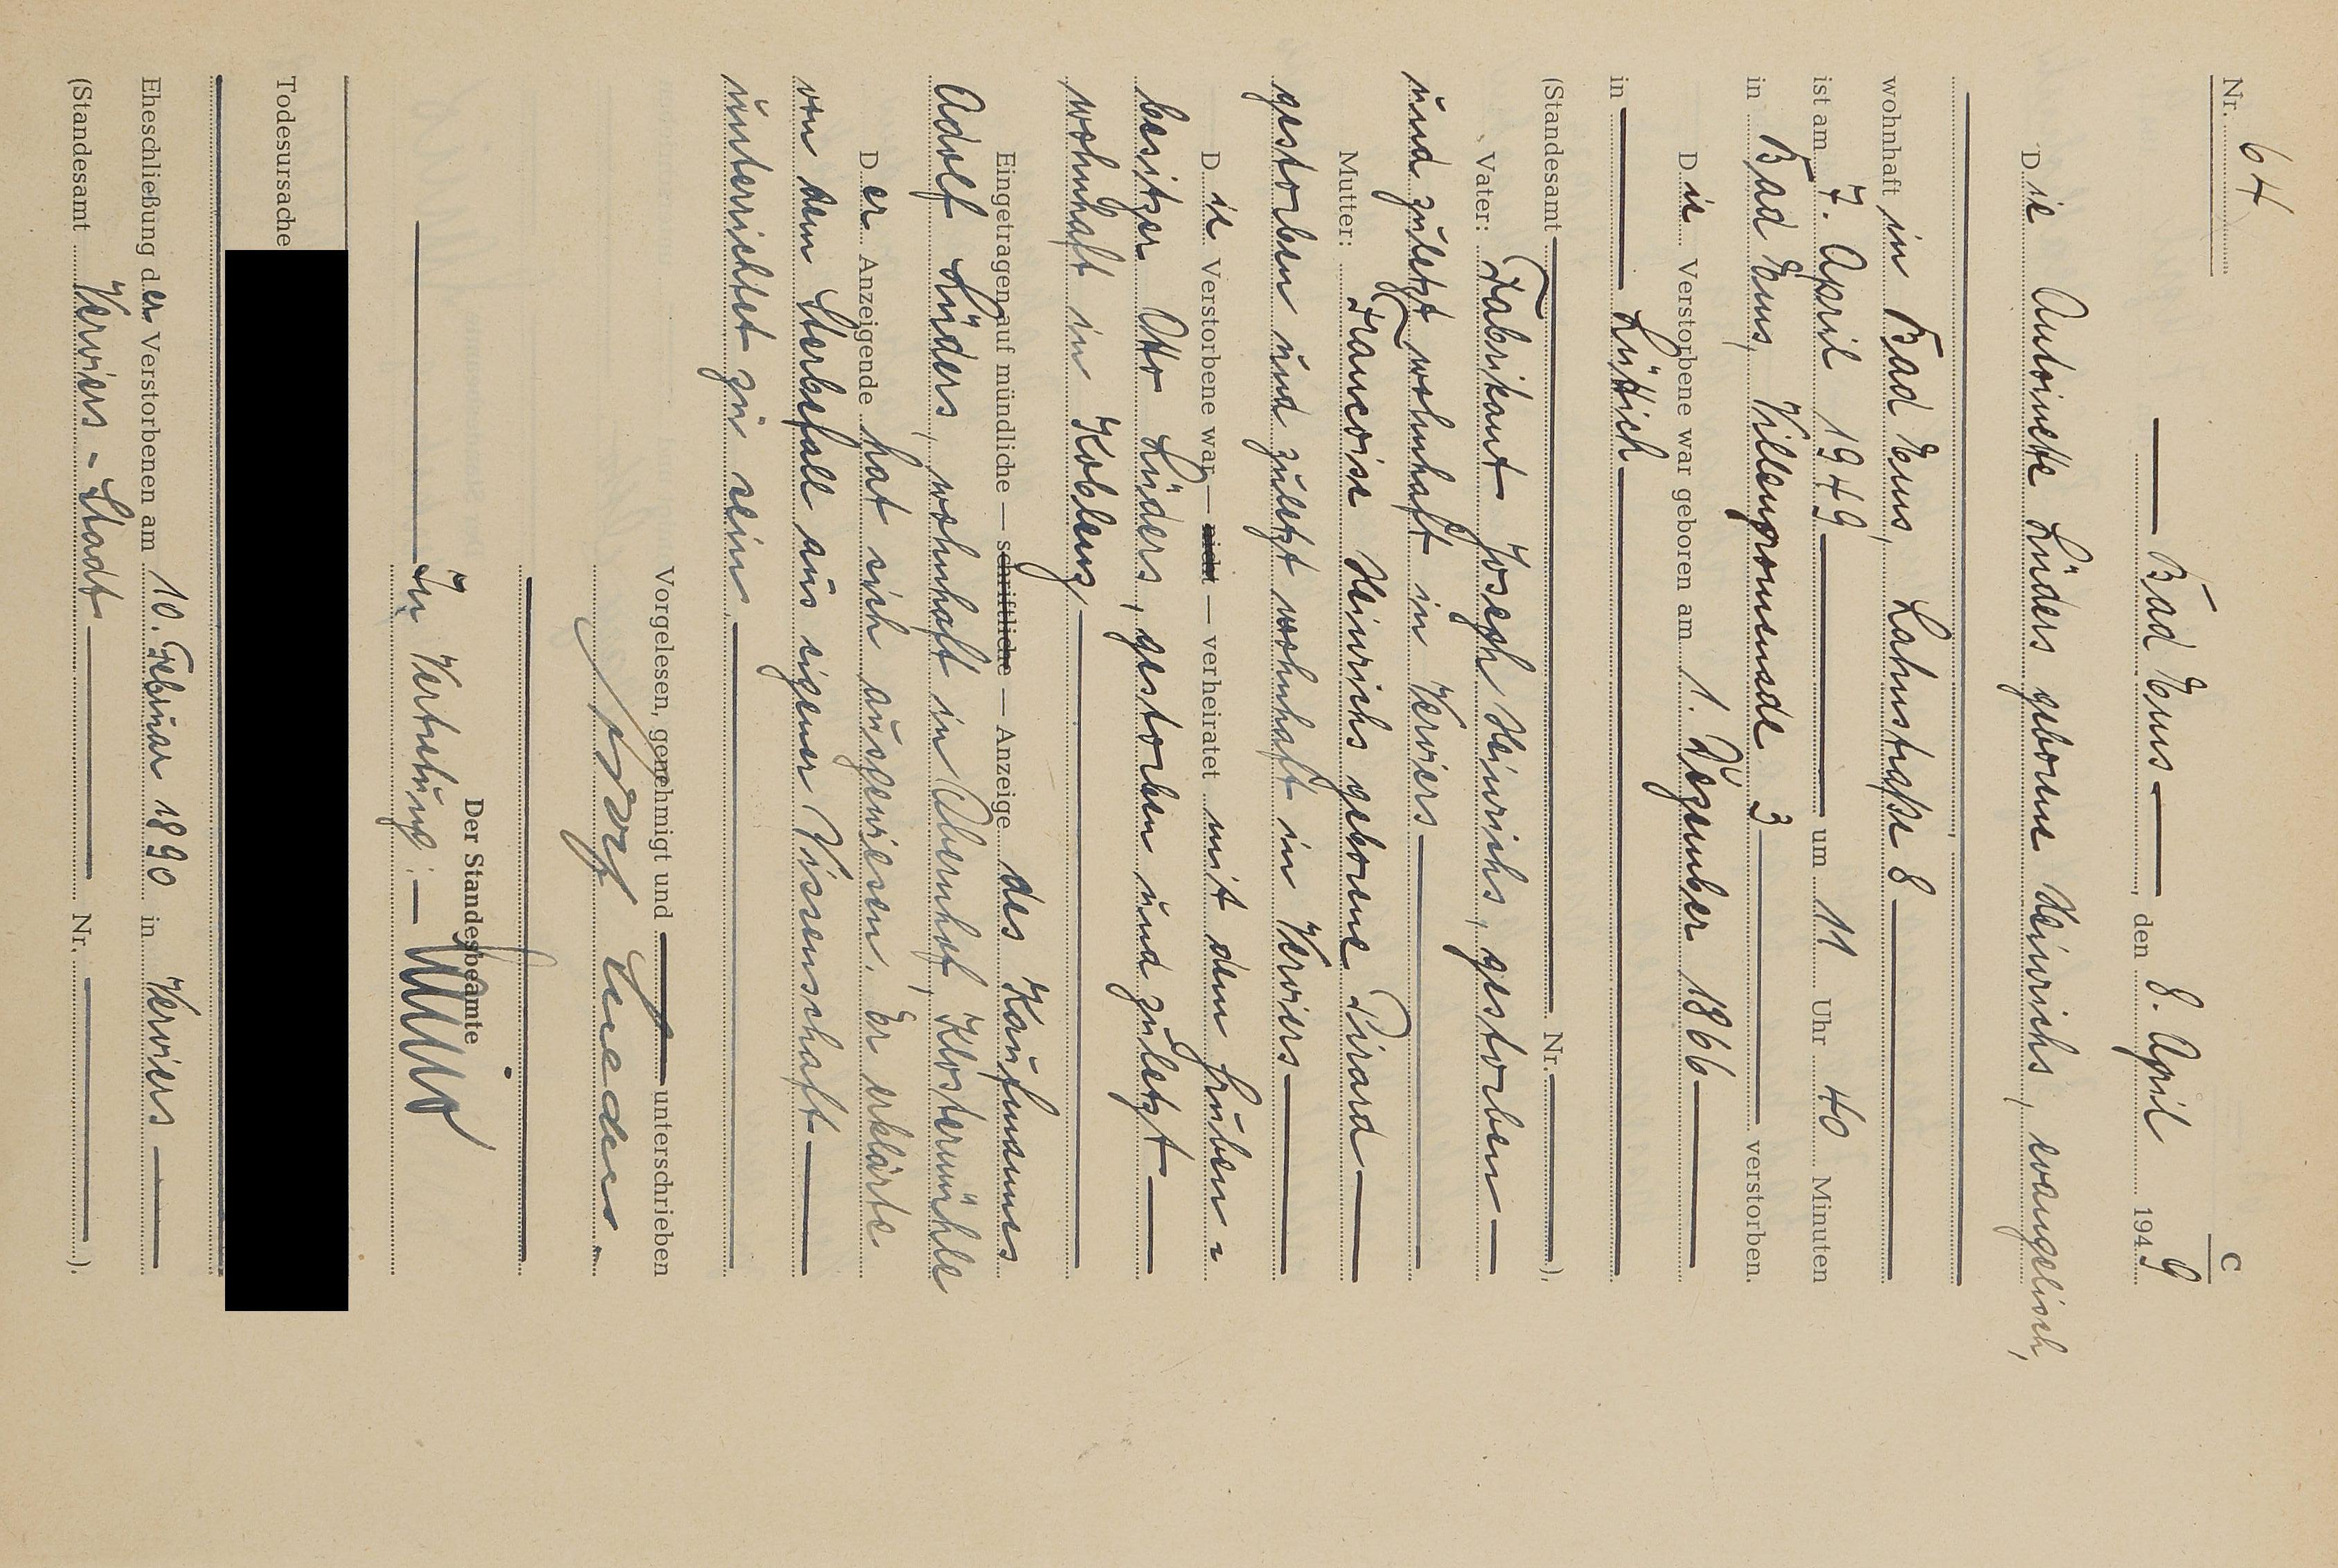 C
Nr. 64
Bad Ems, den 8. April 1949
Die Antoinette Lüders geborene Heinrichs, evangelisch,
wohnhaft in Bad Ems, Lahnstraße 8
ist am 7. April 1949 um 11 Uhr 40 Minuten
in Bad Ems, Villenpromenade 3 verstorben.
Die Verstorbene war geboren am 1. Dezember 1866
in Lüttich
(Standesamt Nr. ).
Vater: Fabrikant Joseph Heinrichs, gestorben
und zuletzt wohnhaft in Verviers
Mutter: Francoise Heinrichs geborene Pirard
gestorben und zuletzt wohnhaft in Verviers
Die Verstorbene war — nicht — verheiratet mit dem Gruben-
besitzer Otto Lüders, gestorben und zuletzt
wohnhaft in Koblenz
Eingetragen auf mündliche — schriftliche — Anzeige des Kaufmannes
Adolf Lüders, wohnhaft in Obernhof, Klostermühle
Der Anzeigende hat sich ausgewiesen. Er erklärte
von dem Sterbefall aus eigener Wissenschaft
unterrichtet zu sein
Vorgelesen, genehmigt und unterschrieben
Adolf Lueders
Der Standesbeamte
In Vertretung:
Todesursache
Eheschließung der Verstorbenen am 10. Februar 1890 in Verviers
(Standesamt Verviers-Stadt Nr. ).